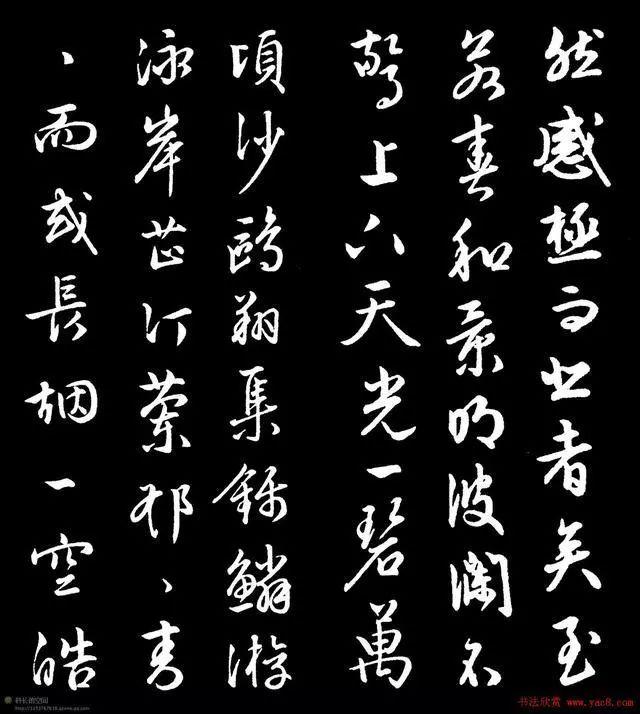 然感極而悲者矣至
若春和景明波瀾不
驚上下天光一碧萬
頃沙鷗翔集錦鱗游
泳岸芷汀蘭郁、青
、而或長烟一空皓
书法欣赏 www.yac8.com